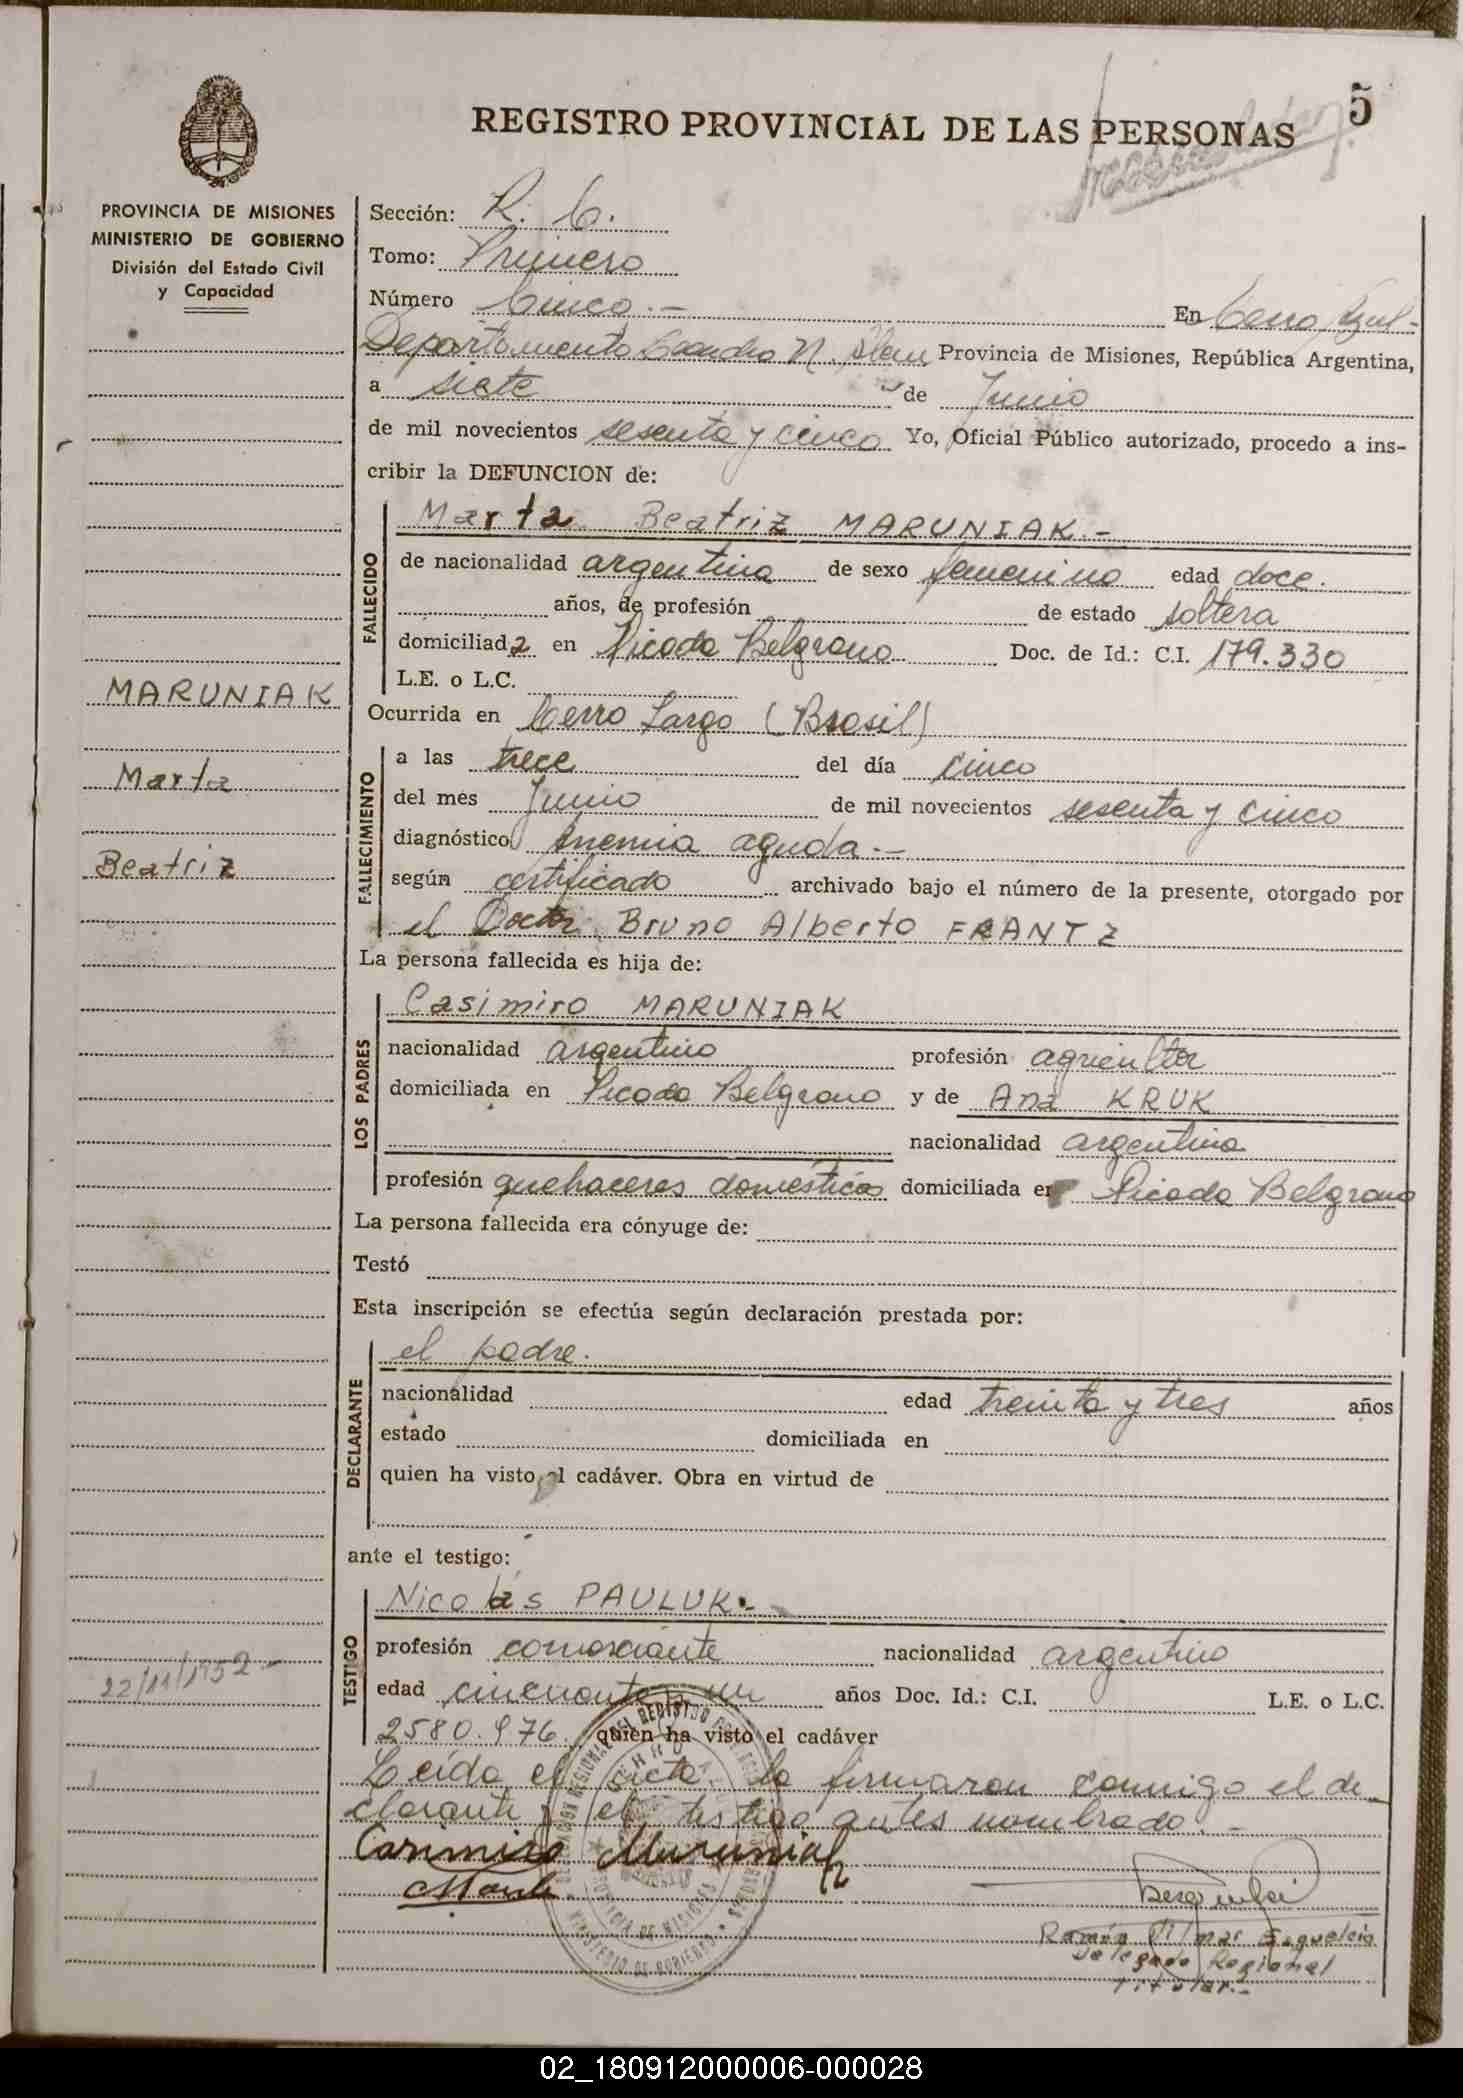 5
REGISTRO PROVINCIAL DE LAS PERSONAS
PROVINCIA DE MISIONES
MINISTERIO DE GOBIERNO
División del Estado Civil
y Capacidad
Sección: R. C.
Tomo: Primero
Número Cinco.-
En Cerro Azul-
Departamento Leandro N. Alem Provincia de Misiones, República Argentina,
a siete de Junio
de mil novecientos sesenta y cinco Yo, Oficial Público autorizado, procedo a ins-
cribir la DEFUNCION de:
FALLECIDO
Marta Beatriz MARUNIAK.-
de nacionalidad argentina de sexo femenino edad doce.
años, de profesión de estado soltera
domiciliada en Picada Belgrano Doc. de Id.: C.I. 179.330
L.E. o L.C.
MARUNIAK
Marta
Beatriz
Ocurrida en Cerro Largo (Brasil)
FALLECIMIENTO
a las trece del día cinco
del mes Junio de mil novecientos sesenta y cinco
diagnóstico Anemia aguda.-
según certificado archivado bajo el número de la presente, otorgado por
el Doctor Bruno Alberto FRANTZ
La persona fallecida es hija de:
LOS PADRES
Casimiro MARUNIAK
nacionalidad argentino profesión agricultor
domiciliada en Picada Belgrano y de Ana KRUK
nacionalidad argentina
profesión quehaceres domésticos domiciliada en Picada Belgrano
La persona fallecida era cónyuge de:
Testó
Esta inscripción se efectúa según declaración prestada por:
DECLARANTE
el padre.
nacionalidad edad treinta y tres años
estado domiciliada en
quien ha visto el cadáver. Obra en virtud de
ante el testigo:
TESTIGO
Nicolás PAULUK.-
profesión comerciante nacionalidad argentino
edad cincuenta y un años Doc. Id.: C.I. L.E. o L.C.
2580.976 quien ha visto el cadáver
22/11/1952-
Leída el acta la firmaron conmigo el de
clarante y el testigo antes nombrado.-
Casimiro Maruniak
Ramón
Delegado Regional
Titular.-
PROVINCIA DE MISIONES
MINISTERIO DE GOBIERNO
02_180912000006-000028